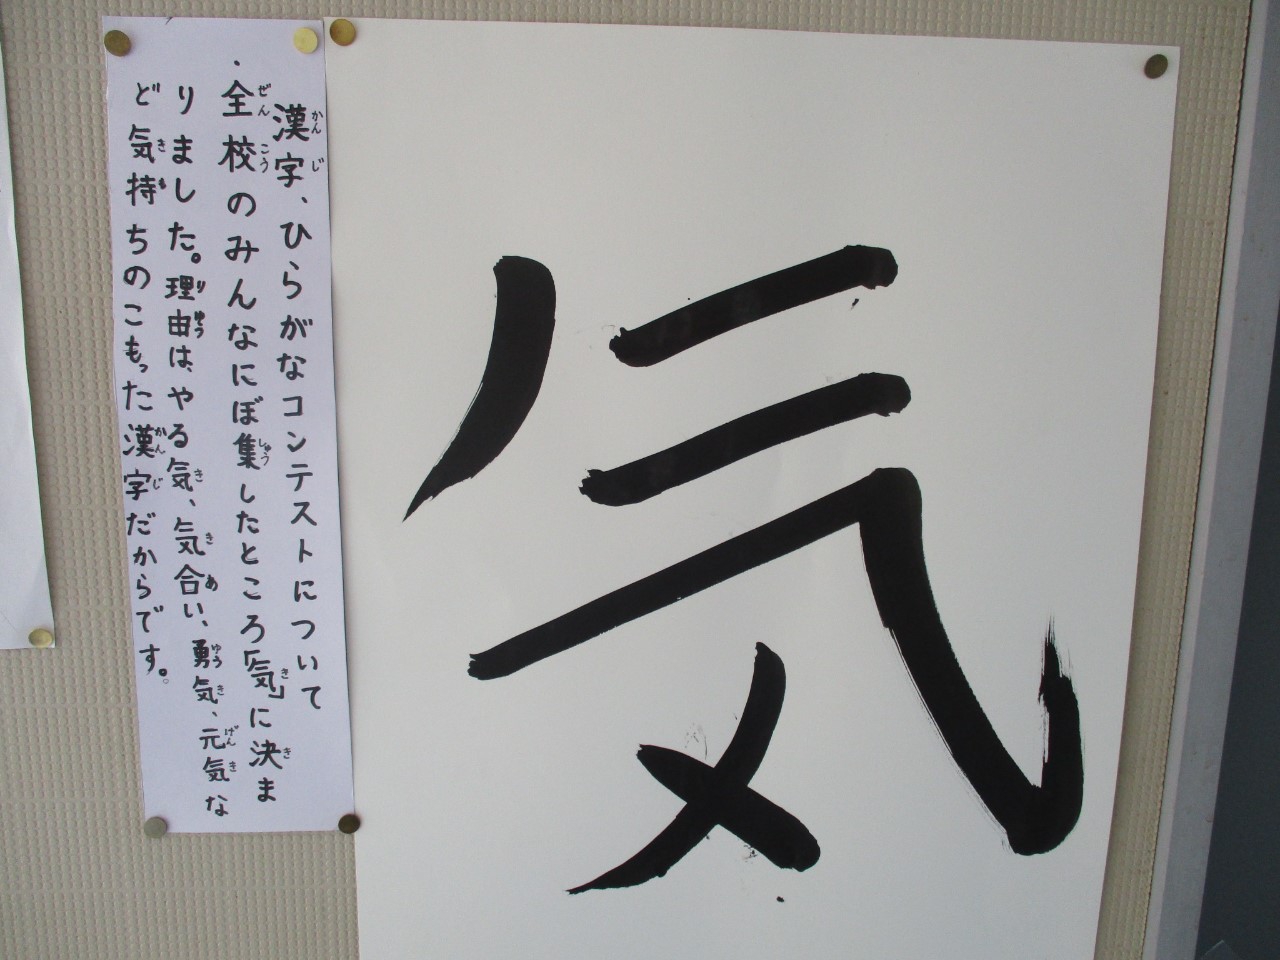 気
漢字、ひらがなコンテストについて
・全校のみんなにぼ集したところ「気」に決ま
りました。理由は、やる気、気合い、勇気、元気な
ど気持ちのこもった漢字だからです。